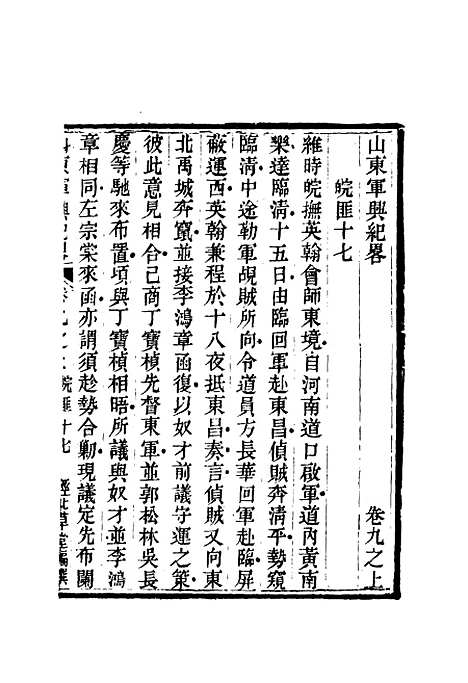 山東軍興紀畧 卷九之上
皖匪十七
維時皖撫英翰會師東境自河南道口啟軍道內黃南
樂達臨清十五日由臨回軍赴東昌偵賊奔清平勢窺
臨清中途勒軍覘賊所向令道員方長華回軍赴臨屏
蔽運西英翰兼程於十八夜抵東昌奏言偵賊又向東
北禹城奔竄並接李鴻章函復以奴才前議守運之策
彼此意見相合已商丁寶楨先督東軍並郭松林吳長
慶等馳來布置項與丁寶楨相晤所議與奴才並李鴻
章相同左宗棠來函亦謂須趁勢合勦現議定先布關
皖匪十七